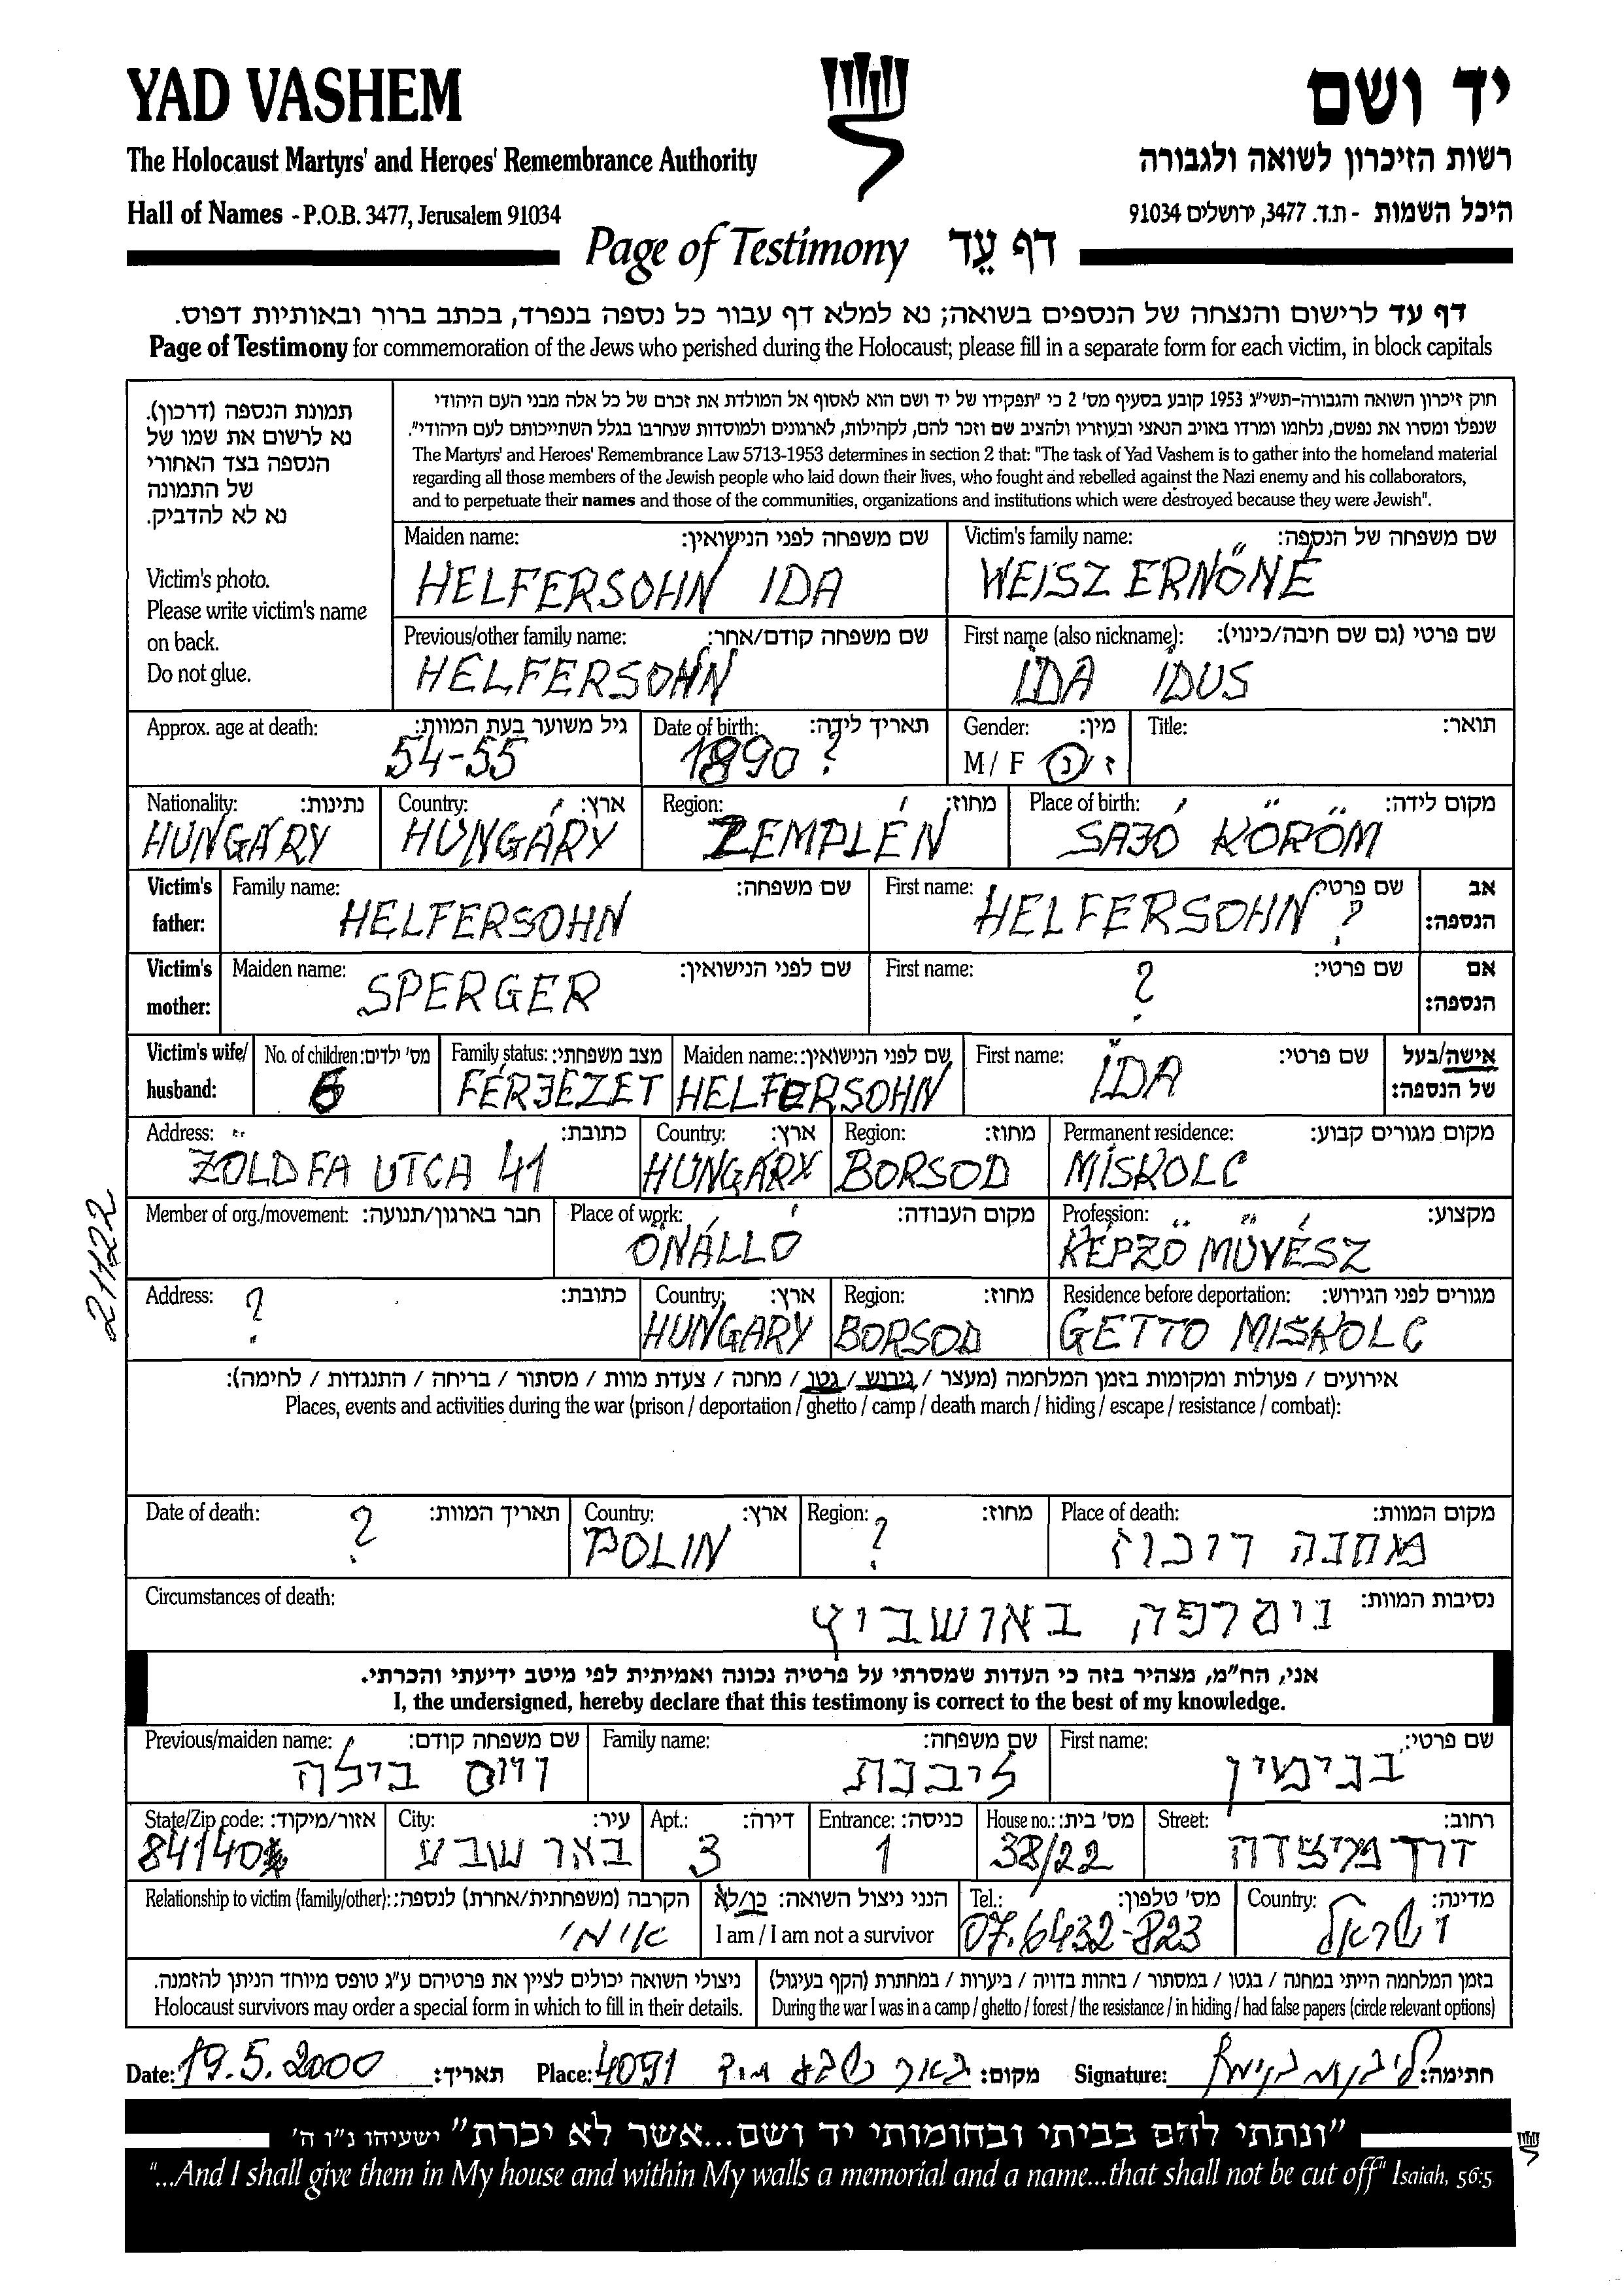 YAD VASHEM
יד ושם
The Holocaust Martyrs' and Heroes' Remembrance Authority
רשות הזיכרון לשואה ולגבורה
Hall of Names - P.O.B. 3477, Jerusalem 91034
היכל השמות - ת.ד. 3477, ירושלים 91034
Page of Testimony דף עֵד
דף עד לרישום והנצחה של הנספים בשואה; נא למלא דף עבור כל נספה בנפרד, בכתב ברור ובאותיות דפוס.
Page of Testimony for commemoration of the Jews who perished during the Holocaust; please fill in a separate form for each victim, in block capitals
תמונת הנספה (דרכון).
נא לרשום את שמו של
הנספה בצד האחורי
של התמונה
נא לא להדביק.
Victim's photo.
Please write victim's name
on back.
Do not glue.
חוק זיכרון השואה והגבורה-תשי"ג 1953 קובע בסעיף מס' 2 כי "תפקידו של יד ושם הוא לאסוף אל המולדת את זכרם של כל אלה מבני העם היהודי
שנפלו ומסרו את נפשם, נלחמו ומרדו באויב הנאצי ובעוזריו ולהציב שם וזכר להם, לקהילות, לארגונים ולמוסדות שנחרבו בגלל השתייכותם לעם היהודי".
The Martyrs' and Heroes' Remembrance Law 5713-1953 determines in section 2 that: "The task of Yad Vashem is to gather into the homeland material
regarding all those members of the Jewish people who laid down their lives, who fought and rebelled against the Nazi enemy and his collaborators,
and to perpetuate their names and those of the communities, organizations and institutions which were destroyed because they were Jewish".
Maiden name: שם משפחה לפני הנישואין: Victim's family name: שם משפחה של הנספה:
HELFERSOHN IDA WEISZ ERNŐNÉ
Previous/other family name: שם משפחה קודם/אחר: First name (also nickname): שם פרטי (גם שם חיבה/כינוי):
HELFERSOHN IDA IDUS
Approx. age at death: גיל משוער בעת המוות: Date of birth: תאריך לידה: Gender: מין: Title: תואר:
54-55 1890 ? M / F ז / נ
Nationality: נתינות: Country: ארץ: Region: מחוז: Place of birth: מקום לידה:
HUNGÁRY HUNGÁRY ZEMPLÉN SAJÓ KÖRÖM
Victim's father: Family name: שם משפחה: First name: שם פרטי: אב הנספה:
HELFERSOHN HELFERSOHN ?
Victim's mother: Maiden name: שם לפני הנישואין: First name: שם פרטי: אם הנספה:
SPERGER ?
Victim's wife/ husband: No. of children: מס' ילדים: Family status: מצב משפחתי: Maiden name: שם לפני הנישואין: First name: שם פרטי: אישה/בעל של הנספה:
6 FÉRJEZET HELFERSOHN IDA
Address: כתובת: Country: ארץ: Region: מחוז: Permanent residence: מקום מגורים קבוע:
ZÖLDFA UTCA 41 HUNGÁRY BORSOD MISKOLC
Member of org./movement: חבר בארגון/תנועה: Place of work: מקום העבודה: Profession: מקצוע:
ÖNÁLLÓ KÉPZŐ MŰVÉSZ
Address: כתובת: Country: ארץ: Region: מחוז: Residence before deportation: מגורים לפני הגירוש:
? HUNGARY BORSOD GETTO MISKOLC
21122
אירועים / פעולות ומקומות בזמן המלחמה (מעצר / גירוש / גטו / מחנה / צעדת מוות / מסתור / בריחה / התנגדות / לחימה):
Places, events and activities during the war (prison / deportation / ghetto / camp / death march / hiding / escape / resistance / combat):
Date of death: תאריך המוות: Country: ארץ: Region: מחוז: Place of death: מקום המוות:
? POLIN ? מחנה ריכוז
Circumstances of death: נסיבות המוות:
ניסרפה באושביץ
אני, הח"מ, מצהיר בזה כי העדות שמסרתי על פרטיה נכונה ואמיתית לפי מיטב ידיעתי והכרתי.
I, the undersigned, hereby declare that this testimony is correct to the best of my knowledge.
Previous/maiden name: שם משפחה קודם: Family name: שם משפחה: First name: שם פרטי:
ווייס בילה ליבנת בנימין
State/Zip code: אזור/מיקוד: City: עיר: Apt.: דירה: Entrance: כניסה: House no.: מס' בית: Street: רחוב:
84140 באר שבע 3 1 38/22 דרך מיצדה
Relationship to victim (family/other): הקרבה (משפחתית/אחרת) לנספה: הנני ניצול השואה: כן/לא Tel.: מס' טלפון: Country: מדינה:
אימי I am / I am not a survivor 07.6432-823 ישראל
ניצולי השואה יכולים לציין את פרטיהם ע"ג טופס מיוחד הניתן להזמנה. בזמן המלחמה הייתי במחנה / בגטו / במסתור / בזהות בדויה / ביערות / במחתרת (הקף בעיגול)
Holocaust survivors may order a special form in which to fill in their details. During the war I was in a camp / ghetto / forest / the resistance / in hiding / had false papers (circle relevant options)
Date: 19.5.2000 תאריך: Place: 4091 באר שבע מקום: Signature: ליבנת בנימין חתימה:
"ונתתי להם בביתי ובחומותי יד ושם...אשר לא יכרת" ישעיהו נ"ו ה'
"...And I shall give them in My house and within My walls a memorial and a name...that shall not be cut off" Isaiah, 56:5